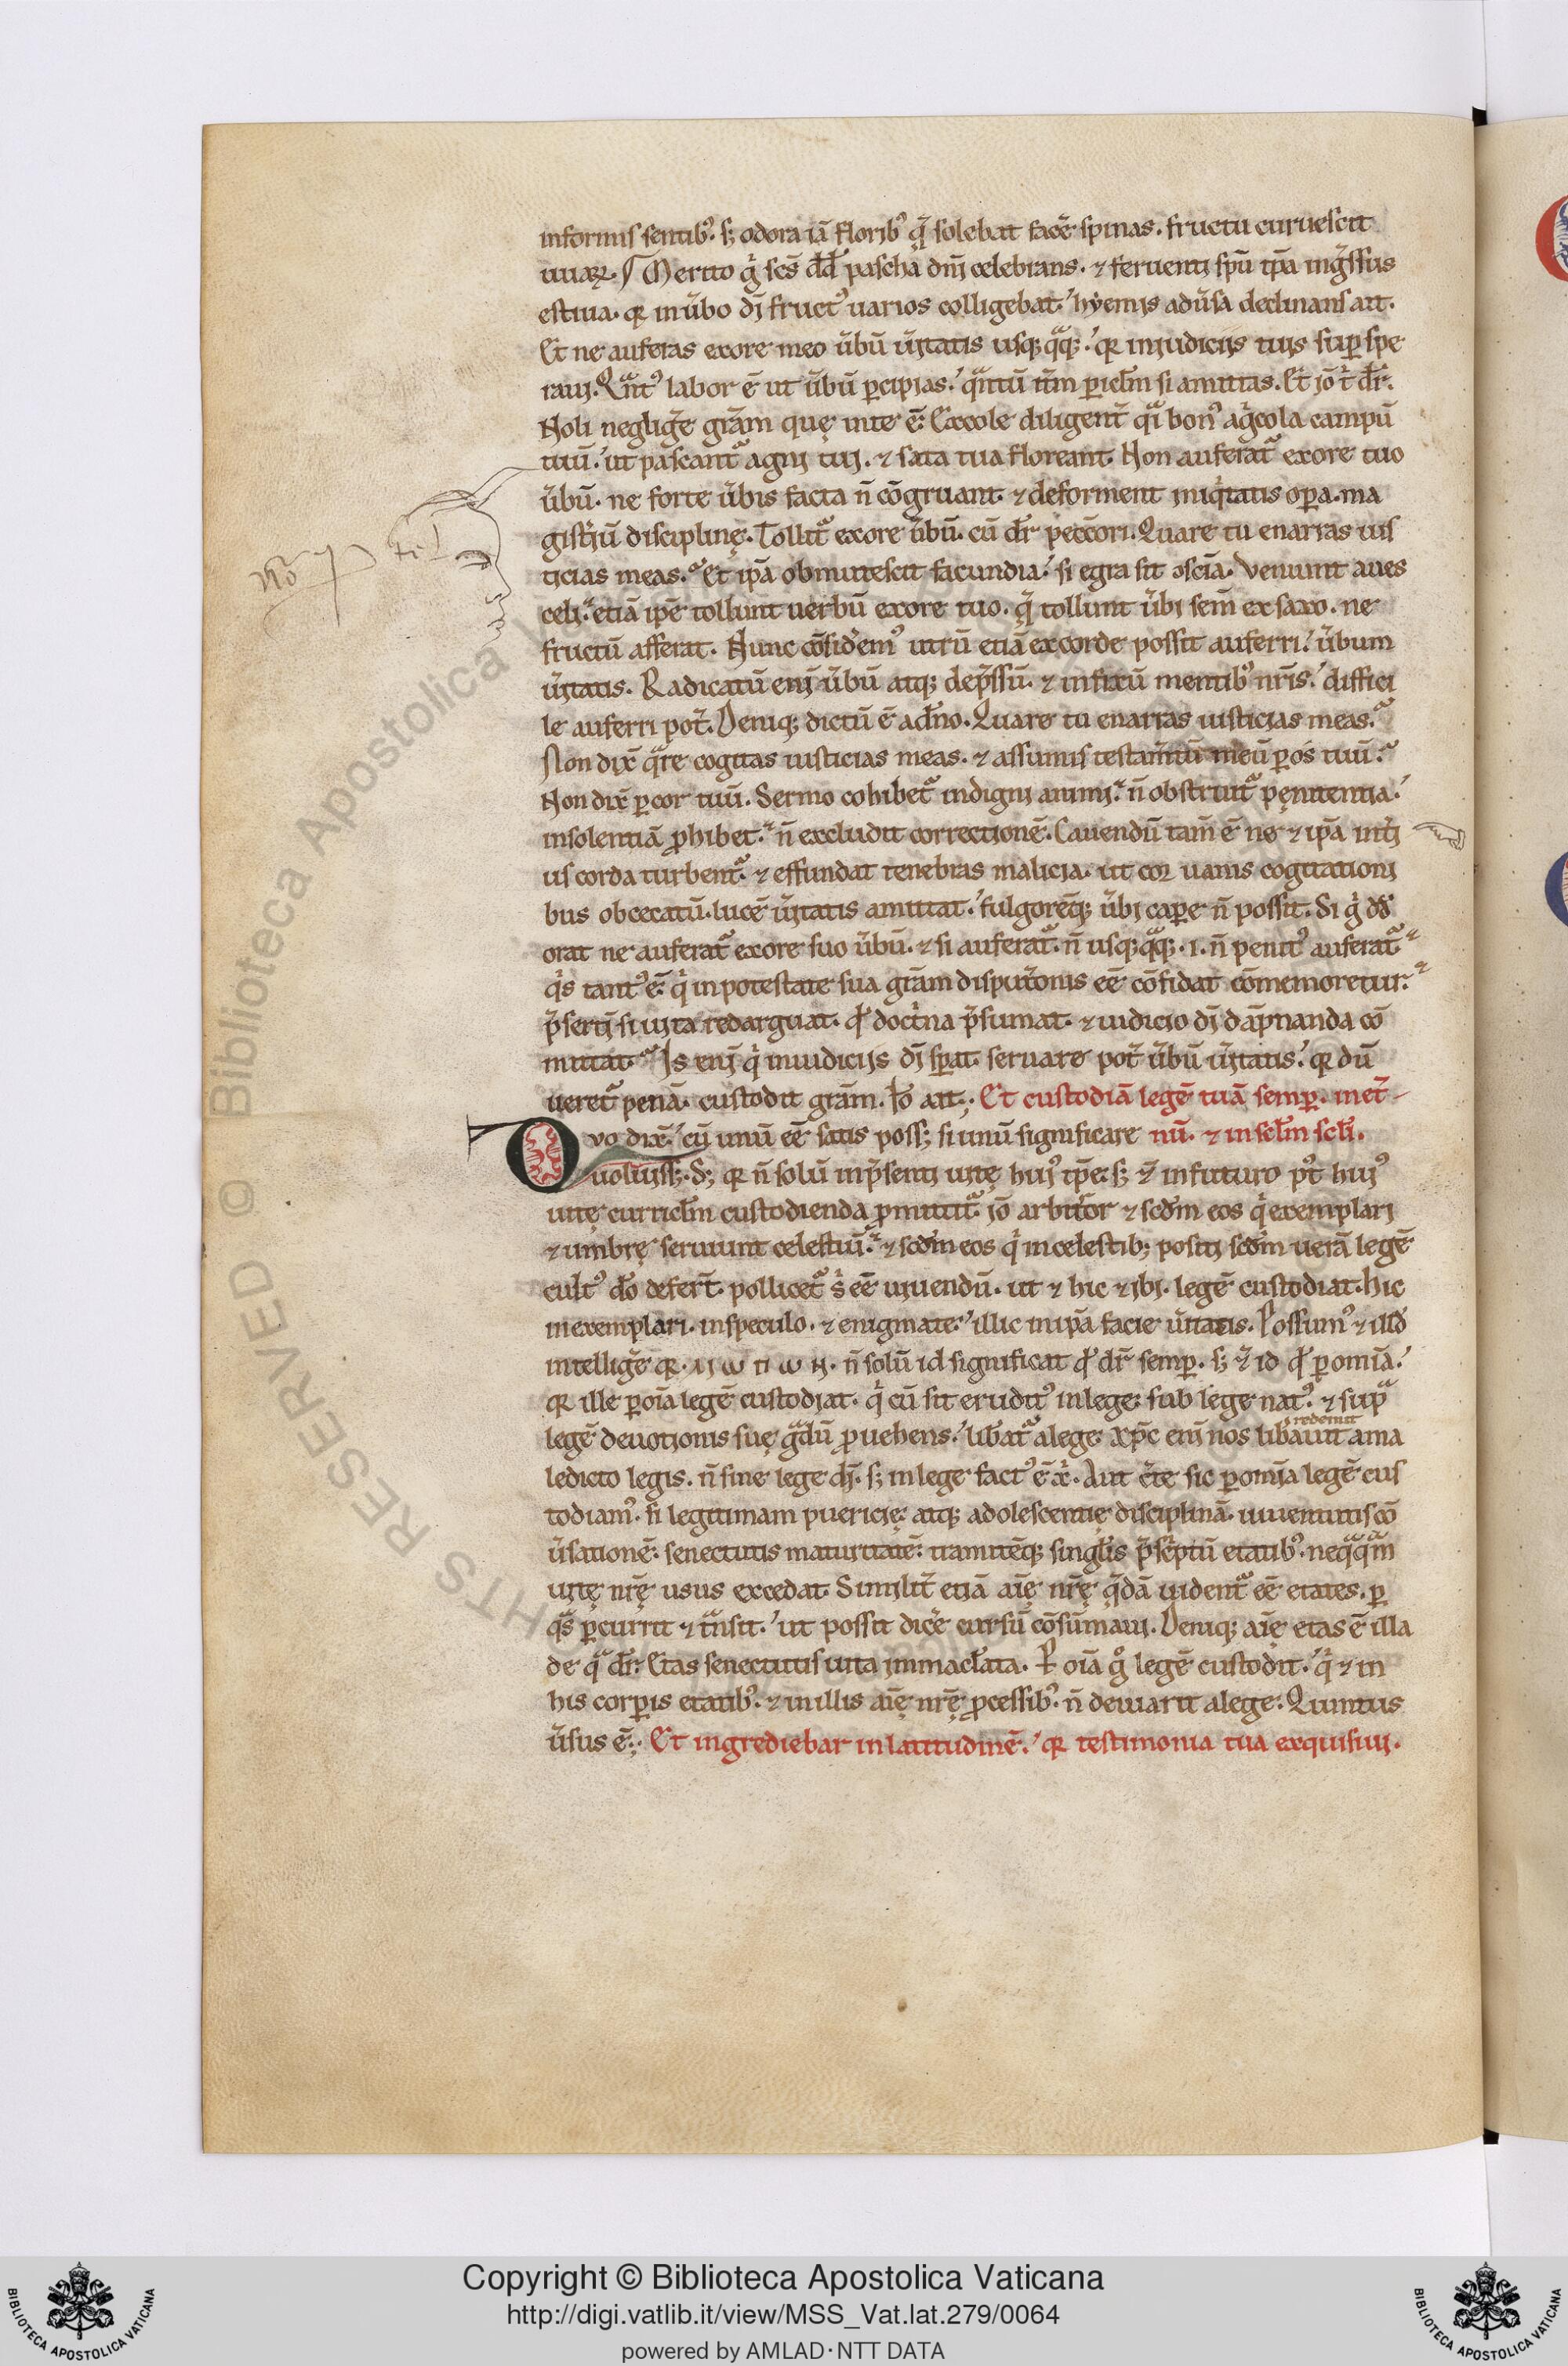 informis sentibꝰ. sꝫ odora iā floribꝰ q̄ solebat facē spinas. fructu curuescit
uuaꝝ. Merito g̊ scs̄ dd̄ pascha dnī celebrans. ⁊ feruenti spū ip̄a ingͥssus
estiua. qꝛ in ūbo dī fructꝰ uarios colligebat. hẏemis adūsa declinans ait.
Et ne auferas exore meo ūbū ūitatis usqꝫ qͣqꝫ. qꝛ iniudiciis tuis suꝑ spe
raui. Qͣntꝰ labor ē ut ūbū ꝑcipias. qͣntū it̄m ꝑicl̄m si amittas. Et iō t̄ dr̄.
Noli negliḡe grām quę inte ē. Excole diligent̄ qͣi bonꝰ agͥcola campū
tuū. ut pascant᷑ agni tui. ⁊ sata tua floreant. Non auferat᷑ exore tuo
ūbū. ne forte ūbis facta n̄ cōgruant. ⁊ deforment iniqͥtatis oꝑa. ma
gistͥiū disciplinę. Tollit᷑ exore ūbū. cū dr̄ peccōri. Quare tu enarras ius
ticias meas. Et ip̄a obmutescit facundia. si egra sit ꝯsciā. Veniunt aues
celi. etiā ip̄e tollunt uerbū exore tuo. q̄ tollunt ūbi sem̄ ex saxo. ne
fructū afferat. Nunc cōsid̄emꝰ utrū etiā excorde possit auferri. ūbum
ūitatis. Radicatū enī ūbū atqꝫ dep̄ssū. ⁊ infixū mentibꝰ nr̄is. diffici
le auferri pot̄. Deniqꝫ dictū ē ad̄no. Quare tu enarras iusticias meas.
Non dix̄ qͣre cogitas iusticias meas. ⁊ assumis testam̄tū meū ꝑ os tuū.
Non dix̄ ꝑ cor tuū. Sermo cohibet᷑ indigni animi. n̄ obstruit᷑ pęnitentia.
insolentiā ꝓhibet. n̄ excludit correctionē. Cauendū tam̄ ē ne ⁊ ip̄a int̄i
us corda turbent᷑. ⁊ effundat tenebras malicia. ut cor uanis cogitationi
bus obcecatū. lucē ūitatis amittat. fulgorēqꝫ ūbi caꝑe n̄ possit. Si g̊ dd̄
orat ne auferat᷑ exore suo ūbū. ⁊ si auferat᷑. n̄ usqꝫqͣqꝫ. i. n̄ penitꝰ auferat᷑
qͥs tantꝰ ē. qͥ in potestate sua grām disputōnis eē cōfidat cōmemoretur.
p̄sertī si uita redarguat. qđ doctͥna p̄sumat. ⁊ iudicio dī dāpnanda cō
mittat. Is enī qͥ iniudiciis dī sꝑat. seruare pot̄ ūbū ūitatis. qꝛ dū
ueret᷑ penā. custodit grām. Iō ait. Et custodiā legē tuā semꝑ. inet̄
Qvo dixē. cū unū eē satis possꝫ si unū significare nū. ⁊ in scl̄m scl̄i.
uoluissꝫ. Sꝫ qꝛ n̄ solū in p̄senti uitę huiꝰ tp̄e. sꝫ ⁊ in futuro pꝰt huiꝰ
uitę curricl̄m custodienda ꝓmittit᷑. iō arbitͦr ⁊ scd̄m eos qͥ exemplari
⁊ umbrę seruiunt celestiū. ⁊ scd̄m eos qͥ in celestibꝫ positi scd̄m uerā legē
cultꝰ dō defert̄. pollicet᷑ sͥ eē uiuendū. ut ⁊ hic ⁊ ibi. legē custodiat. Hic
in exemplari. in speculo. ⁊ enigmate. illic in ip̄a facie ūitatis. Possumꝰ ⁊ illd̄
intelliḡe qꝛ. n̄ solū id significat qđ dr̄ semꝑ. sꝫ ⁊ id qđ ꝑ omīa.
qꝛ ille ꝑ oīa legē custodiat. qͥ cū sit eruditꝰ in lege. sub lege natꝰ. ⁊ supͣ
legē deuotionis suę gͣdū ꝓuehens. libat᷑ alege. xp̄c enī nos libauit ama
redemit
ledicto legis. n̄ sine lege dī. sꝫ in lege factꝰ ē xͥ. Aut c̄te sic ꝑ omīa legē cus
todiamꝰ. si legitimam puericię. atqꝫ adolescentię disciplinā. iuuentutis cō
ūsationē. senectutis maturitatē. tramitēqꝫ singl̄is p̄scͥptū etatibꝰ. neqͣqͣm
uitę nr̄ę usus excedat. Similit̄ etiā aīę nr̄ę q̄dā uident᷑ eē etates. ꝑ
qͣs ꝑcurrit ⁊ tͣnsit. ut possit dic̄e cursū cōsūmaui. Deniqꝫ aīę etas ē illa
de qͣ dr̄. Etas senectutis uita immacl̄ata. Ꝑ oīa gͦ legē custodit. qͥ ⁊ in
his corꝑis etatibꝰ. ⁊ in illis aīę nr̄ę ꝓcessibꝰ. n̄ deuiarit alege. Quintus
ūsus ē. Et ingrediebar in latitudinē. qꝛ testimonia tua exquisiui.
Copyright © Biblioteca Apostolica Vaticana
http://digi.vatlib.it/view/MSS_Vat.lat.279/0064
powered by AMLAD·NTT DATA